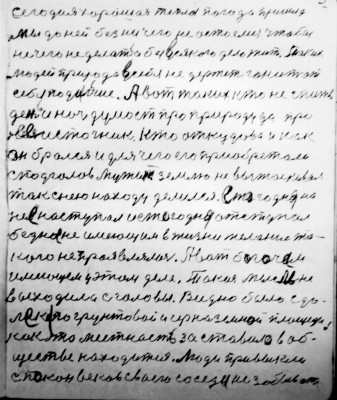 сегодня хорошая тепла погода пришла
мы до ней без ничего не остоемся чтобы
ничего не делат а без всякого дела жит. Таких
людей природа в себя не держит гонит от
себя подальше. А вот таких кто не спит
ден и ноч думает про природу да про
источник. Кто откудова и как
он брался и для чего его приобретали
с под голов мужик землю не вытаскивал
так с нею на ходу делился. Сто годин на
не наступал и сто годин отступал
бедно не имеющим в жизни желания та-
кого не проявлял. А вот богачам
имеющем в этом деле. Такая мысль не
выходила с головы. Видно было с да-
лека грунтовой и черноземной площади,
как это местность заставило в об-
ществе находится. Люди привыкли
спокон веков своего соседа не забывать